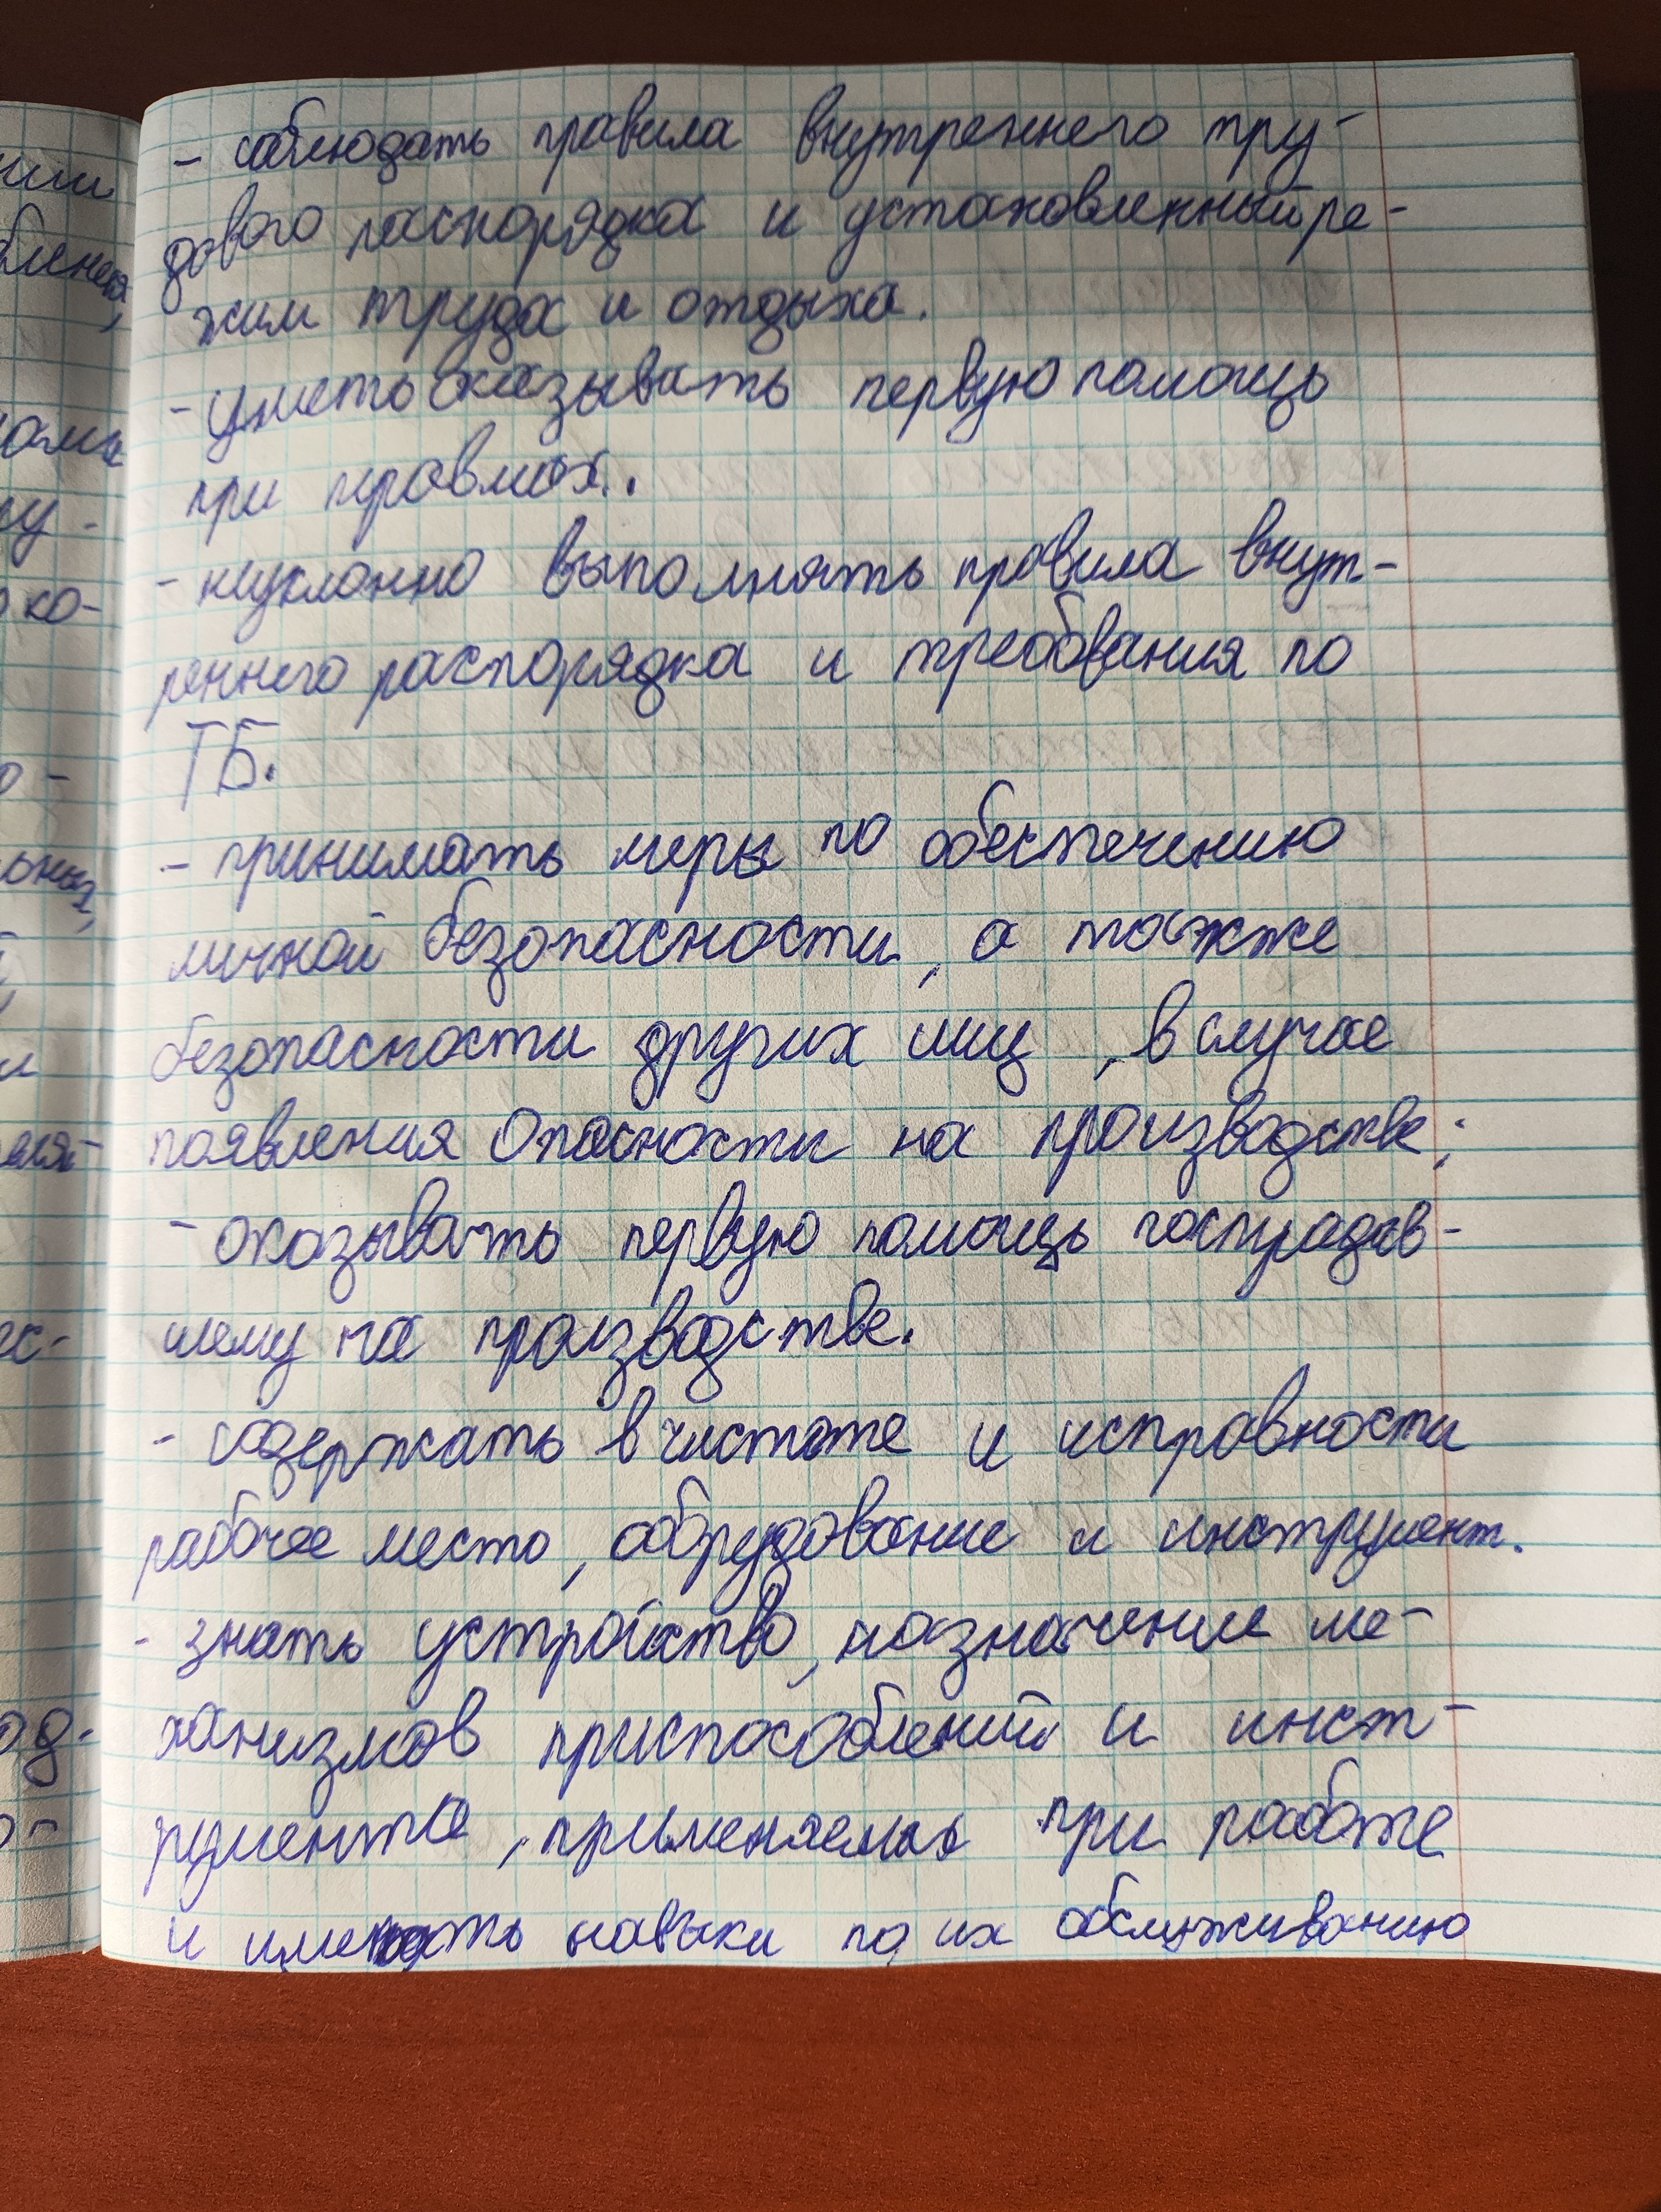 - соблюдать правила внутреннего тру-
дового распорядка и установленный ре-
жим труда и отдыха.
- уметь оказывать первую помощь
при травмах.
- неуклонно выполнять правила внут-
реннего распорядка и требования по
ТБ.
- принимать меры по обеспечению
личной безопасности, а также
безопасности других лиц, в случае
появления опасности на производстве;
- оказывать первую помощь пострадав-
шему на производстве.
- содержать в чистоте и исправности
рабочее место, оборудование и инструмент.
- знать устройство, назначение ме-
ханизмов приспособлений и инст-
румента, применяемых при работе
и иметь навыки по их обслуживанию